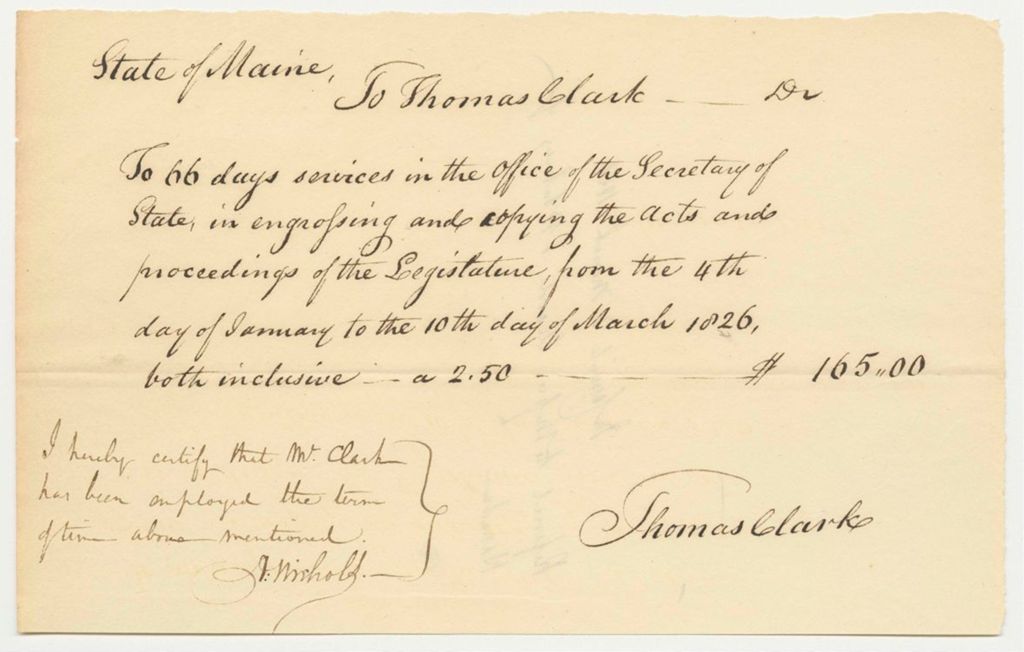 State of Maine,
To Thomas Clark — Dr
To 66 days services in the Office of the Secretary of
State, in engrossing and copying the Acts and
proceedings of the Legislature, from the 4th
day of January to the 10th day of March 1826,
both inclusive — a 2.50 — $ 165,,00
I hereby certify that Mr. Clark
has been employed the term
of time above mentioned.
A. Nichols.
Thomas Clark